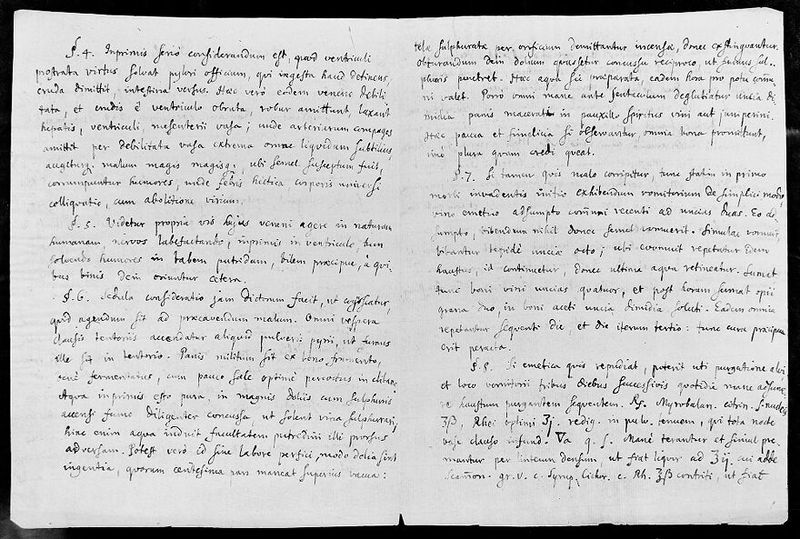 §. 4. Inprimis serio considerandum est, quod ventriculi
prostrata virtus solvat pylori officium, qui ingesta haud detinens,
cruda dimittit, intestina versus. Haec vero eadem venena debili
tata, et crudis è ventriculo obruta, robur amittunt, laxant
hepatis, ventriculi, mesenterii vasa; unde arteriarum compages
amittit per debilitata vasa extrema omne liquidum subtilius,
augetur malum magis magisq., ubi semel susceptum fuit,
corrumpuntur humores, unde febris hectica corporis universi
colliquatio, cum abolitione virium.
§. 5. Videtur propria vis hujus veneni agere in naturam
humanam, nervos labefactando, inprimis in ventriculo, tum
solvendo humores in tabem putridam, bilem praecipue, à qui
bus binis dein oriuntur cetera.
§. 6. Sedula consideratio jam dictorum facit, ut cognoscatur,
quid agendum sit ad praecavendum malum. Omni vespera
clausis tentoriis accendatur aliquid pulveris pyrii, ut fumus
ille sit in tentorio. Panis militum sit ex bono frumento,
bene fermentatus, cum pauco sale optime percoctus in clibano.
Aqua inprimis esto pura, in magnis doliis cum sulphuris
accensi fumo diligenter concussa ut solent vina sulphurari,
hinc enim aqua induit facultatem putredini illi prorsus
adversam. Potest vero id sine labore perfici, modo dolia sint
ingentia, quorum centesima pars maneat superius vacua:
tela sulphurata per orificium demittantur incensa, donec exstinguantur.
obturandum dein dolium quassetur concussu reciproco, ut fumus sul-
phuris penetret. Haec aqua sic praeparata, eadem hora pro potu omni
ni valet. Porro omni mane ante jentaculum deglutiatur uncia di
midia panis macerati in pauxillo spiritus vini aut juniperini.
Haec pauca et simplicia si observantur, omnia bona promittunt,
imò plura quam credi queat.
§. 7. Si tamen quis malo corripitur, tunc statim in primo
morbi invadentis initio exhibendum vomitorium de simplici modo
vino emetico adsumpto ad uncias duas. Eo as
sumpto, bibendum nihil donec semel vomuerit. Simulac vomuit,
bibantur tepidae unciae octo; ubi evomuit repetatur idem
haustus, id continuetur donec ultima aqua retineatur. Sumat
tunc boni vini uncias quatuor, et post horam sumat opii
grana duo, in boni aceti uncia dimidia soluti. Eadem omnia
repetantur sequenti die, et die iterum tertio: tunc cura praecipua
erit peracta.
§. 8. Si emetica quis repudiat, poterit uti purgatione alvi
et loco vomitorii tribus diebus successivis quotidie mane adsume
re haustum purgantem sequentem. Rs. Myrobalan. citrin. s. nucleis
ʒß, Rhei optimi ʒj. redig. in pulv. tenuem, qui tota nocte
vase clauso infund. Va q. s. Mane terantur et simul pre
mantur per linteum densum ut fiat liquor ad ʒij. cui adde
Scamon. gr. v. c. Syrup. Cichor. c. Rh. ʒß contriti, ut fiat